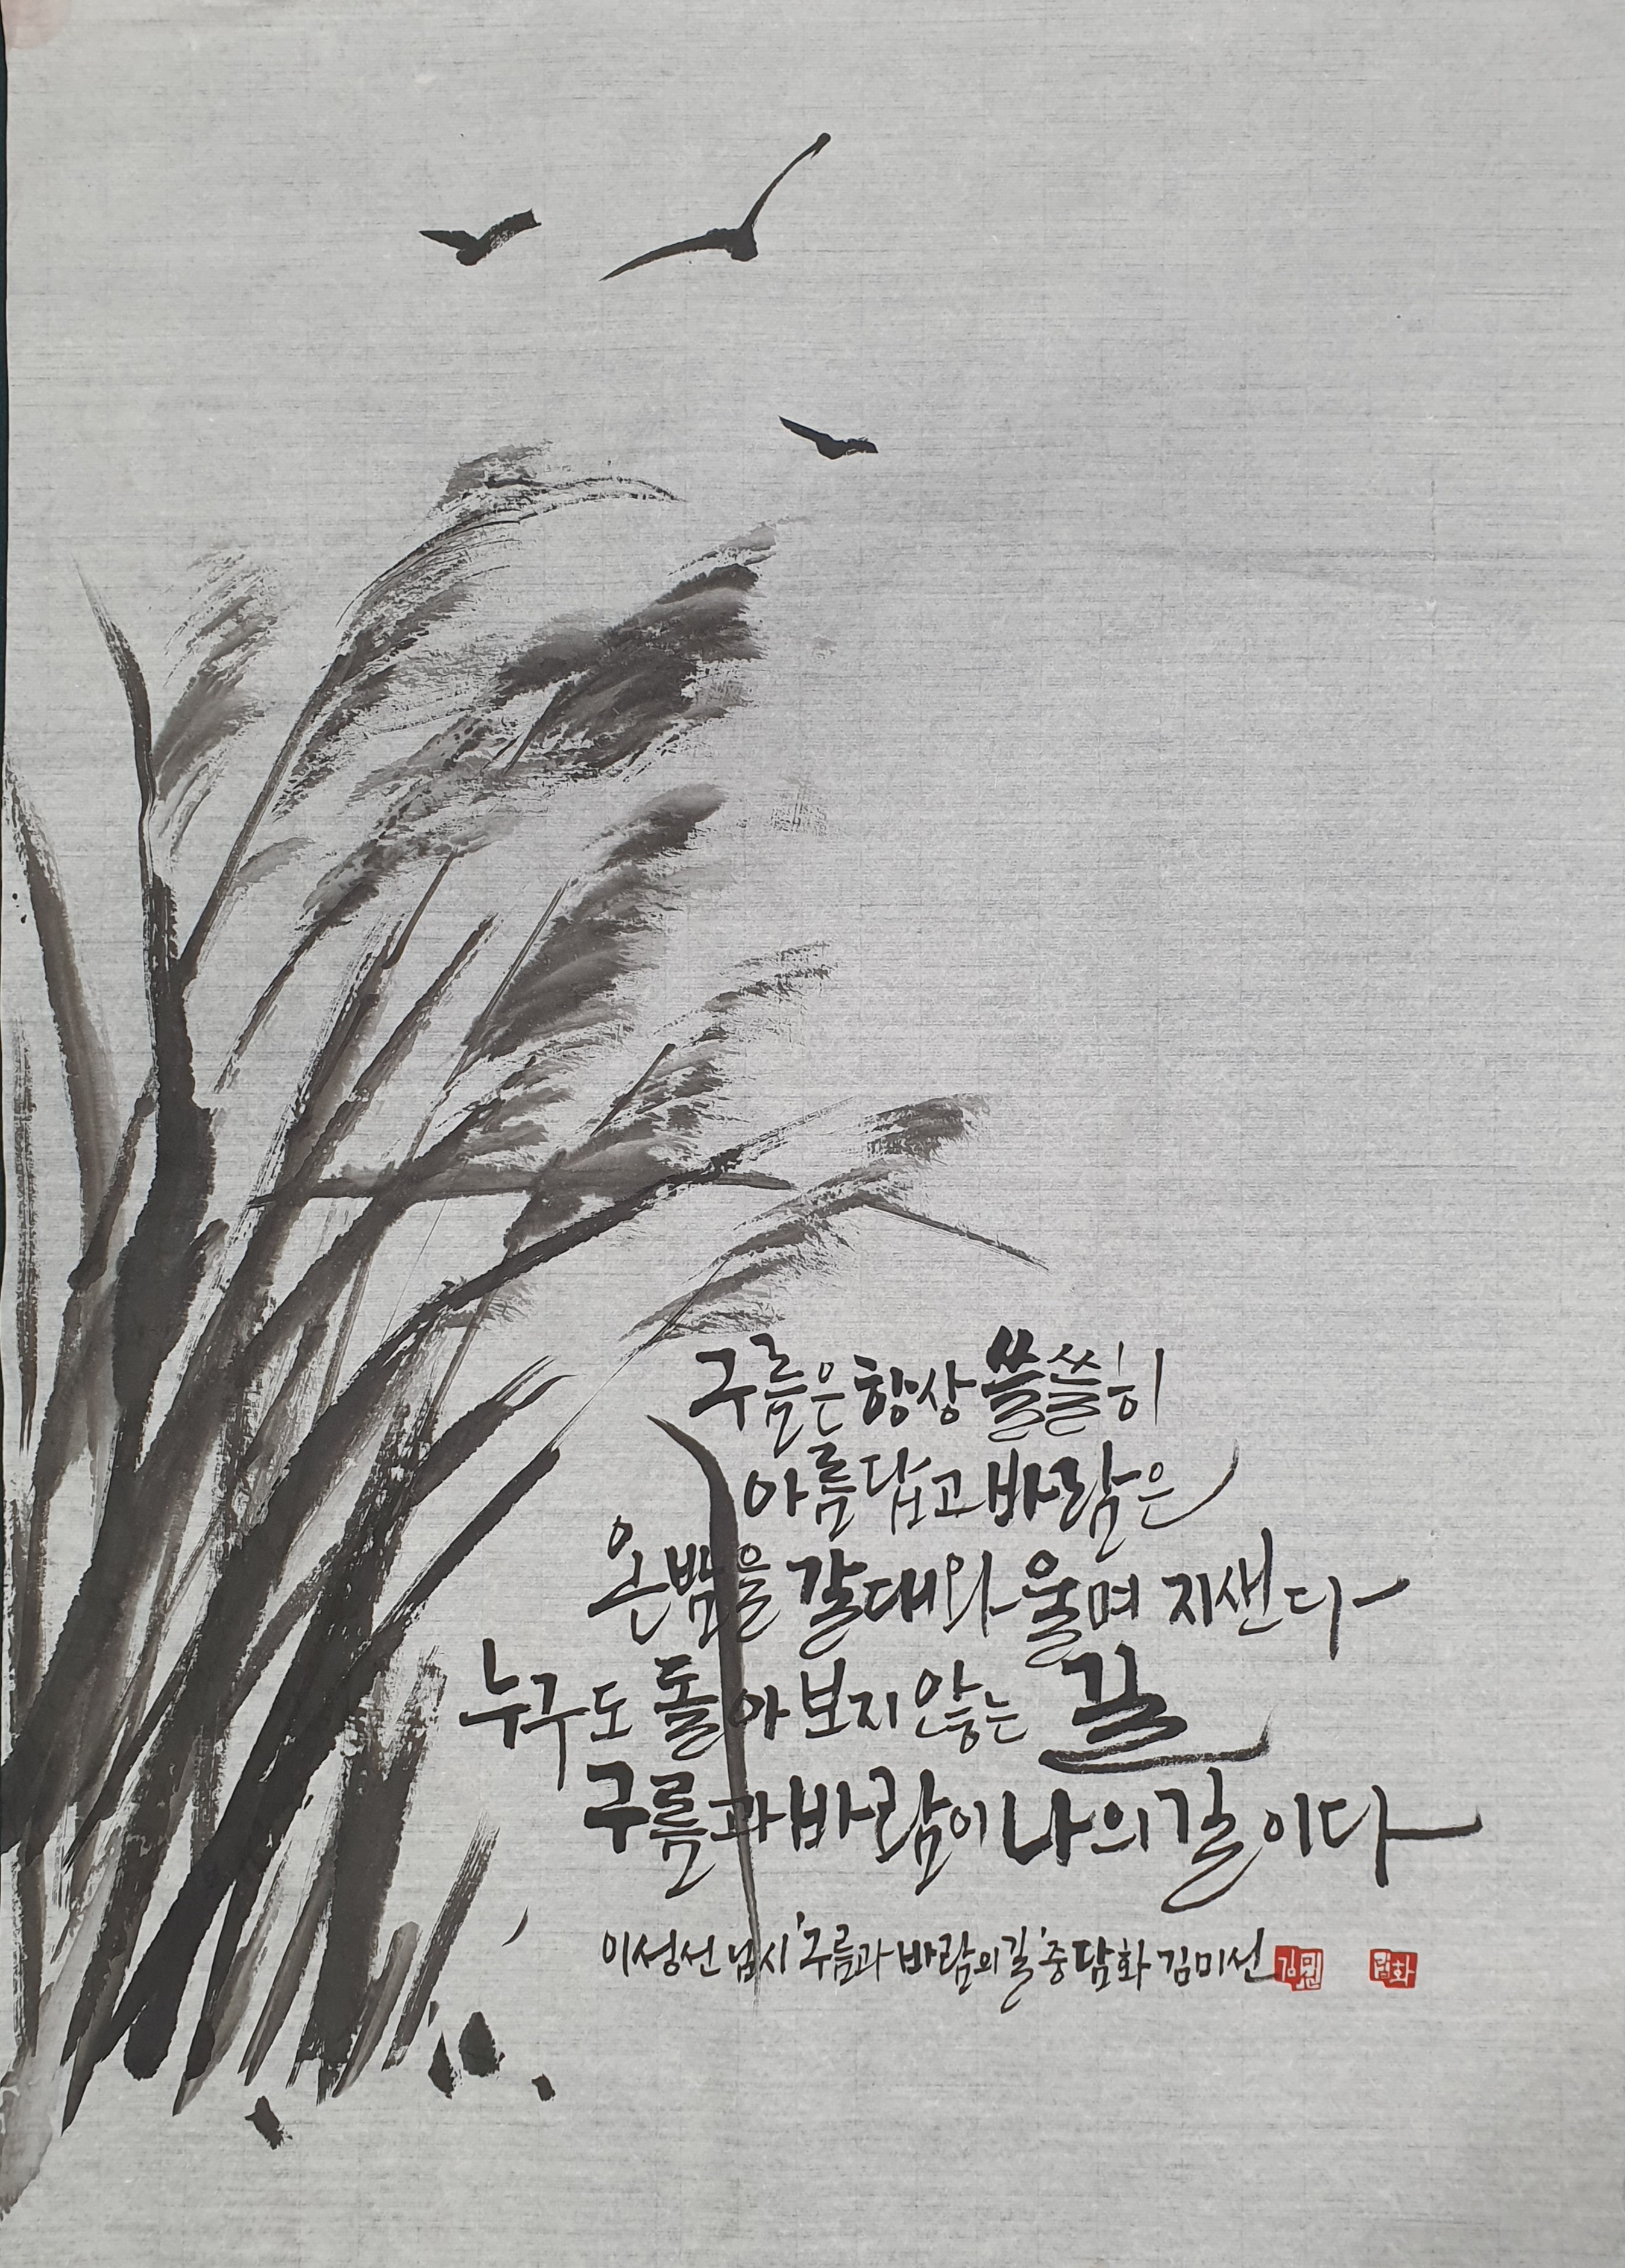 구름은 항상 쓸쓸히
아름답고 바람은
온밤을 갈대와 울며 지샌다
누구도 돌아보지 않는 끝
구름과 바람이 나의 길이다
이성선 님 시 '구름과 바람의 길' 중 담화 김미선
담화